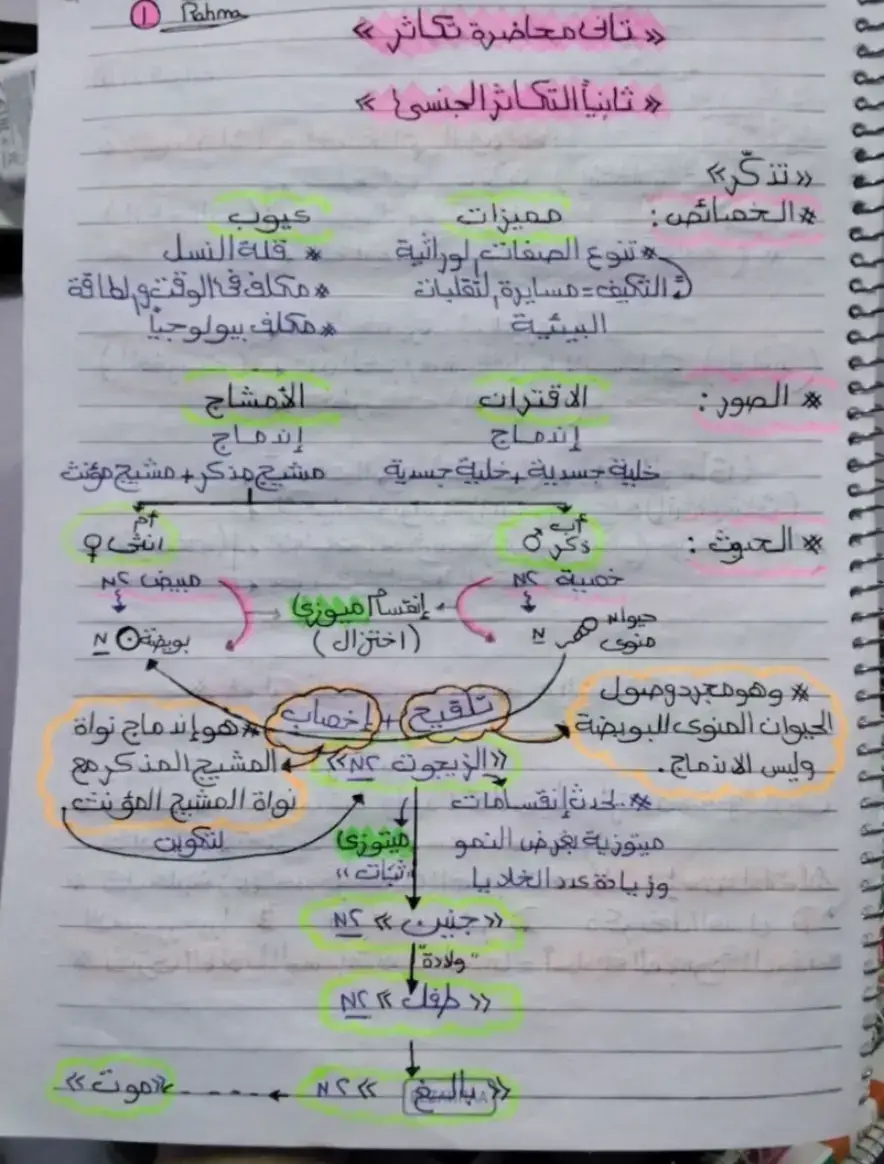 ① Rahma
« تانى محاضرة تكاثر »
« ثانياً التكاثر الجنسى »
« تذكّر »
* الخصائص : مميزات عيوب
* تنوع الصفات الوراثية * قلة النسل
التكيف = مسايرة التقلبات * مكلف فى الوقت والطاقة
البيئية * مكلف بيولوجياً
* الصور : الاقتران الأمشاج
إندماج إندماج
خلية جسدية + خلية جسدية مشيج مذكر + مشيج مؤنث
* الحدوث : أب أم
ذكر ♂ انثى ♀
خصية 2N مبيض 2N
إنقسام ميوزى
حيوان منوى N (اختزال) بويضة N
تلقيح + إخصاب
* وهو مجرد وصول
الحيوان المنوى للبويضة
وليس الاندماج .
* هو إندماج نواة
المشيج المذكر مع
نواة المشيج المؤنث .
لتكوين
« الزيجوت 2N »
* لحدث إنقسامات
ميتوزية بغرض النمو
وزيادة عدد الخلايا
ميتوزى
" ثبات "
« جنين » 2N
"ولادة"
« طفل » 2N
« بالغ » 2N
« موت »